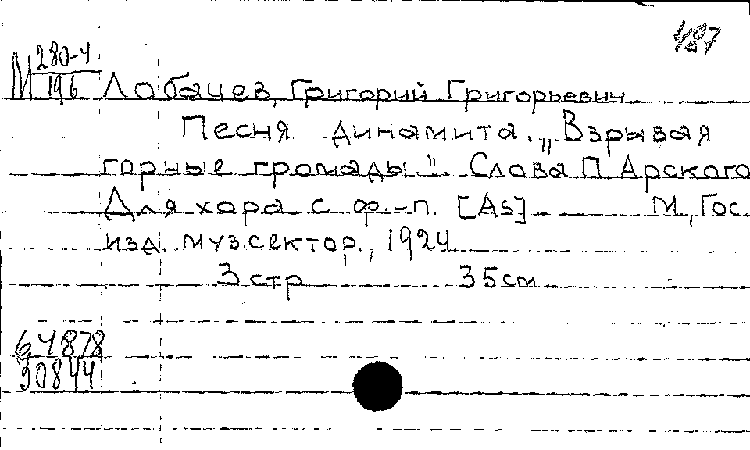 487
М 280-4
196
Лобачев, Григорий Григорьевич
Песня динамита. „Взрывая
горные громады". Слова П Арского
Для хора с ф.-п. [As] М., Гос.
изд. музсектор, 1924
3 стр 35 см
64878
30844